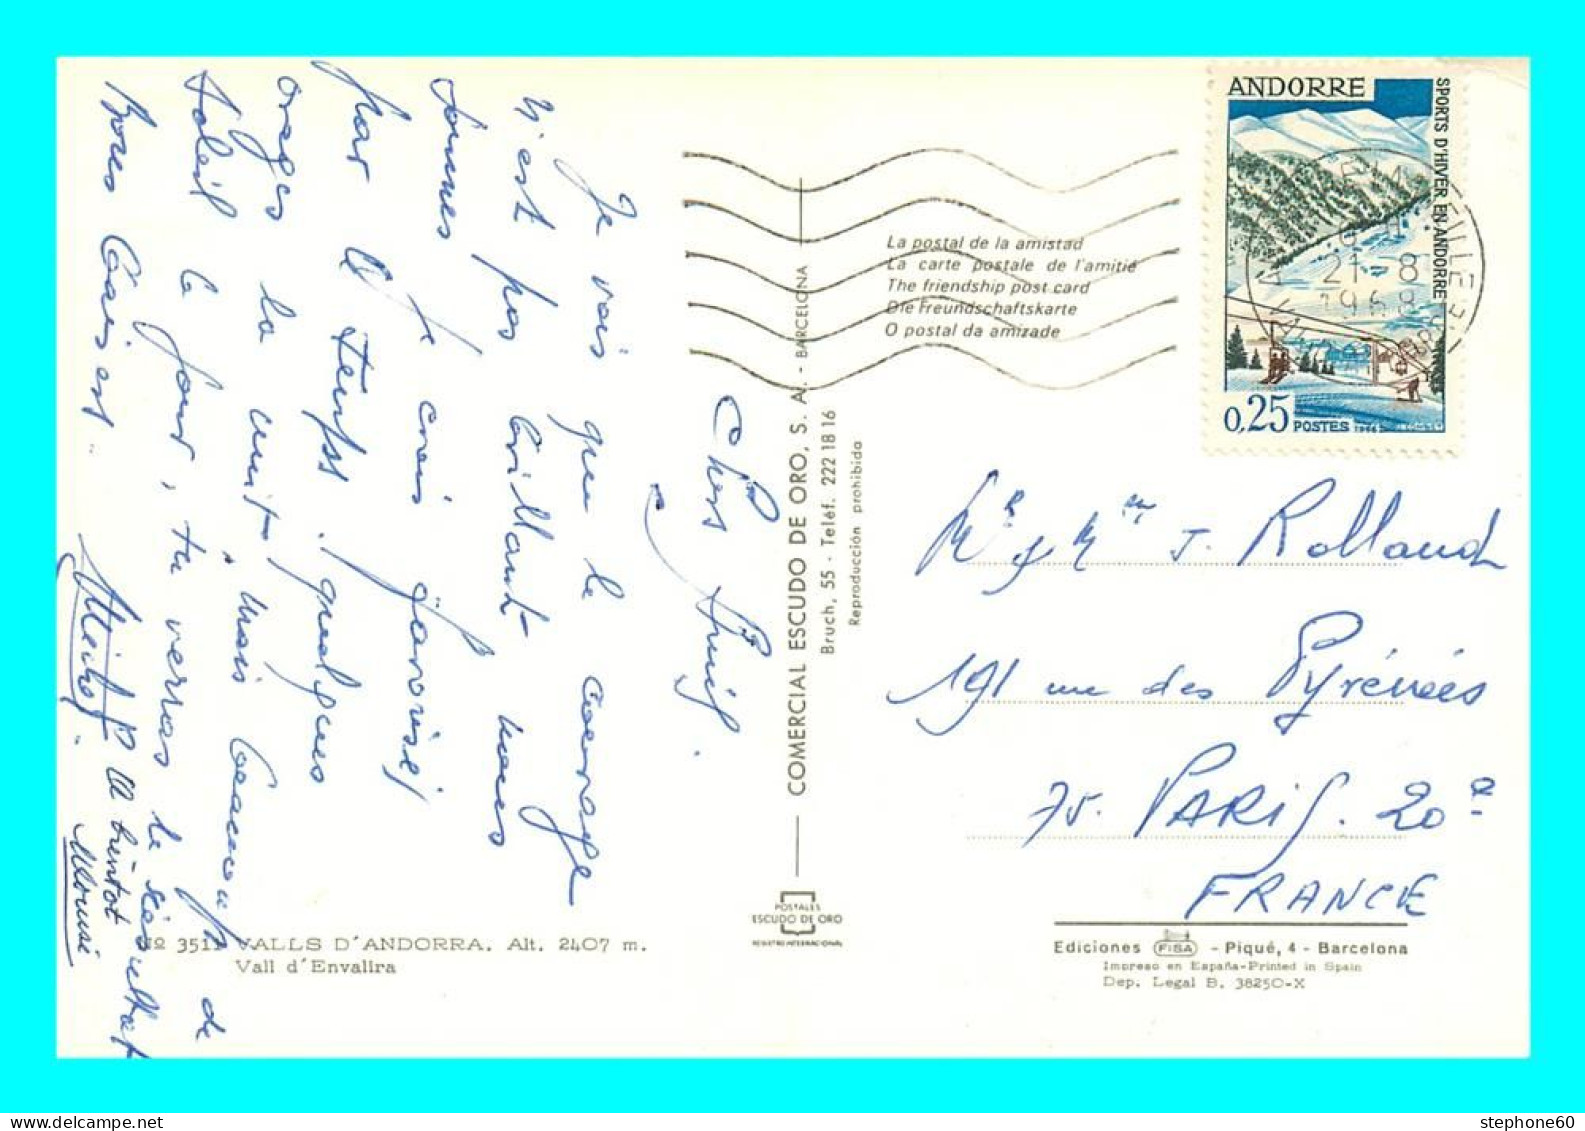 Chers Amis,
Je vois que le courage
n'est pas brillant nous
sommes je crois favorisé
par le temps, quelques
orages la nuit mais beaucoup de
soleil le jour, tu verras le résultat
Bons baisers.
A bientôt
ANDORRE
SPORTS D'HIVER EN ANDORRE
0,25 POSTES 1966
21-8
1968
La postal de la amistad
La carte postale de l'amitié
The friendship post card
Die Freundschaftskarte
O postal da amizade
COMERCIAL ESCUDO DE ORO, S. A. - BARCELONA
Bruch, 55 - Teléf. 222 18 16
Reproducción prohibida
Mr & Mme J. Rolland
191 rue des Pyrénées
75. PARIS. 20e
FRANCE
POSTALES
ESCUDO DE ORO
REGISTRO INTERNACIONAL
Nº 3511 VALLS D'ANDORRA. Alt. 2407 m.
Vall d'Envalira
Ediciones FISA - Piqué, 4 - Barcelona
Impreso en España-Printed in Spain
Dep. Legal B. 38250-X
stephone60